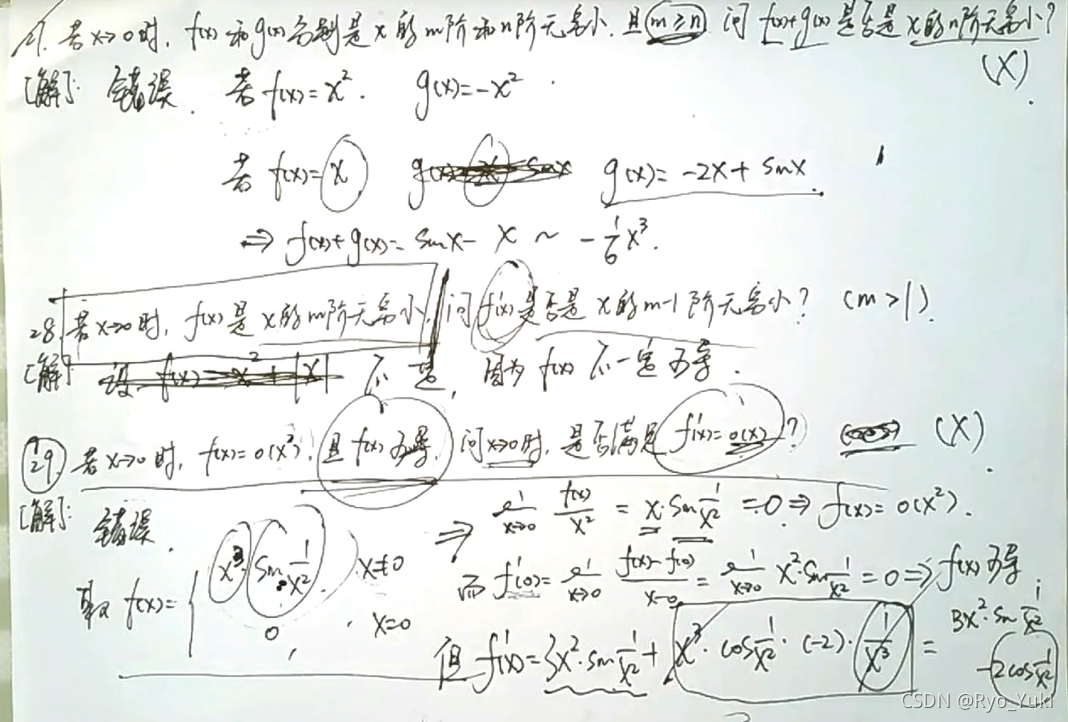 27. 若x→0时, f(x)和g(x)分别是x的m阶和n阶无穷小, 且m≥n, 问f(x)+g(x)是否是x的n阶无穷小?
(X)
[解]: 错误. 若f(x)=x² g(x)=-x².
若f(x)=x g(x)=-2x+sinx.
⇒ f(x)+g(x)=sinx-x ~ -1/6 x³.
28. 若x→0时, f(x)是x的m阶无穷小, 问f'(x)是否是x的m-1阶无穷小? (m>1)
[解]: 不一定, 因为f(x)不一定可导.
29. 若x→0时, f(x)=o(x²), 且f(x)可导, 问x→0时, 是否满足f'(x)=o(x)? (X)
[解]: 错误. ⇒ lim x→0 f(x)/x² = x·sin 1/x² = 0 ⇒ f(x)=o(x²).
取f(x)= { x³·sin 1/x², x≠0
0, x=0
而f'(0)= lim x→0 f(x)-f(0)/x-0 = lim x→0 x²·sin 1/x² = 0 ⇒ f(x)可导.
但f'(x)=3x²·sin 1/x² + x³·cos 1/x²·(-2)·1/x³ = 3x²·sin 1/x² -2cos 1/x²
CSDN @Ryo_Yuki